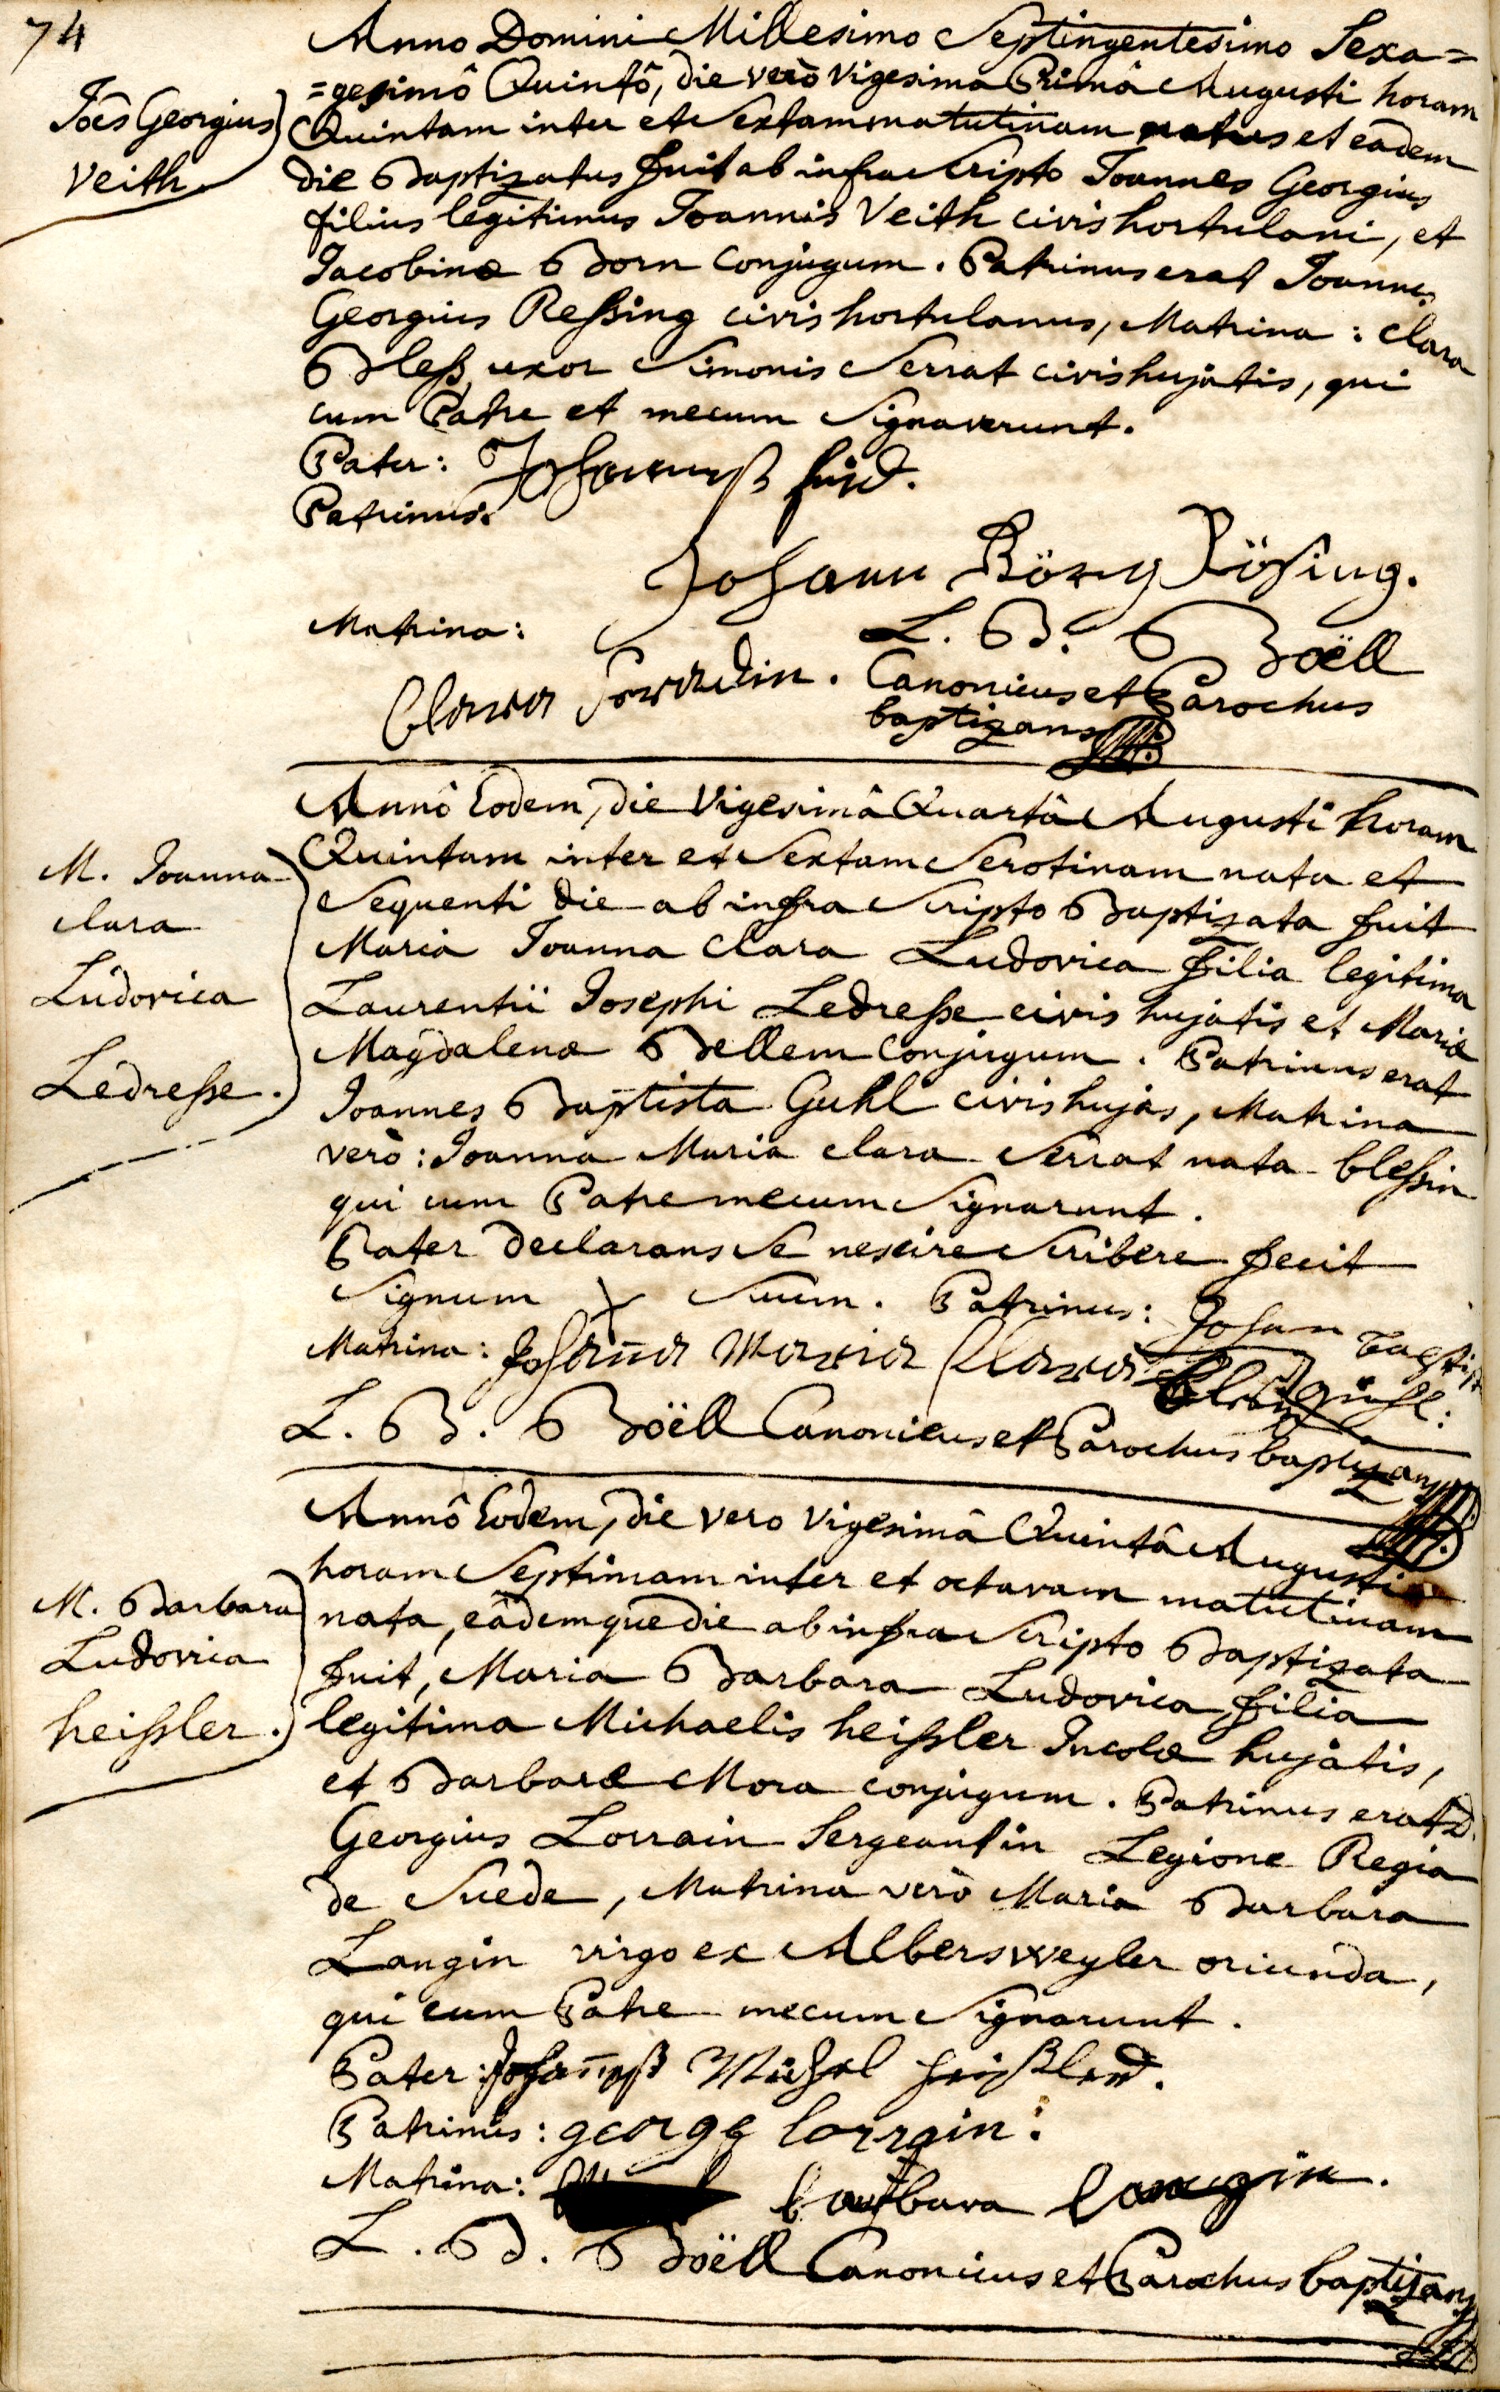 74
Anno Domini Millesimo Septingentesimo Sexa=
=gesimô Quintô, die verò vigesima Primâ Augusti horam
Joẽs Georgius
Veith.
Quintam inter et Sextam matutinam natus et eâdem
die Baptizatus fuit ab infra Scripto Joannes Georgius
filius legitimus Joannis Veith civis hortulani, et
Jacobinæ Born Conjugum. Patrinus erat Joannes
Georgius Reßing civis hortulanus, Matrina: Clara
Bleß, uxor Simonis Serrat civis hujatis, qui
cum Patre et mecum Signaverunt.
Pater: Johanneß
Patrinus:
Johann Görg Rösing.
Matrina:
Clara Seradin.
L. B. Boëll
Canonicus et Parochus
baptizans
Annô Eodem, die Vigesimâ Quartâ Augusti horam
M. Joanna
Clara
Ludovica
Ledreße.
Quintam inter et Sextam Serotinam nata et
Sequenti die ab infra Scripto Baptizata fuit
Maria Joanna Clara Ludovica filia legitima
Laurentii Josephi Ledreße civis hujatis et Mariæ
Magdalenæ Bellem Conjugum. Patrinus erat
Joannes Baptista Guhl civis hujas, Matrina
verò: Joanna Maria Clara Serrat nata bleßin
qui cum Patre mecum Signarunt.
Pater declarans Se nescire Scribere fecit
Signum + Suum. Patrinus: Johan Baptist
guhl:
Matrina: Johaña Maria Clara
L. B. Boëll Canonicus et Parochus baptizans
Annô Eodem, die vero vigesimâ Quintâ Augusti
horam Septimam inter et octavam matutinam
M. Barbara
Ludovica
heißler.
nata, eâdemque die ab infra Scripto Baptizata
fuit, Maria Barbara Ludovica filia
legitima Michaelis heißler Incolæ hujatis,
et Barbaræ Mora conjugum. Patrinus erat D.
Georgius Lorrain Sergeant in Legione Regia
de Suede, Matrina verò Maria Barbara
Langin virgo ex Albersweyler oriunda,
qui cum Patre mecum Signarunt.
Pater: Johañeß Michel
Patrinus: george lorrain:
Matrina: barbara langin.
L. B. Boëll Canonicus et Parochus baptizans